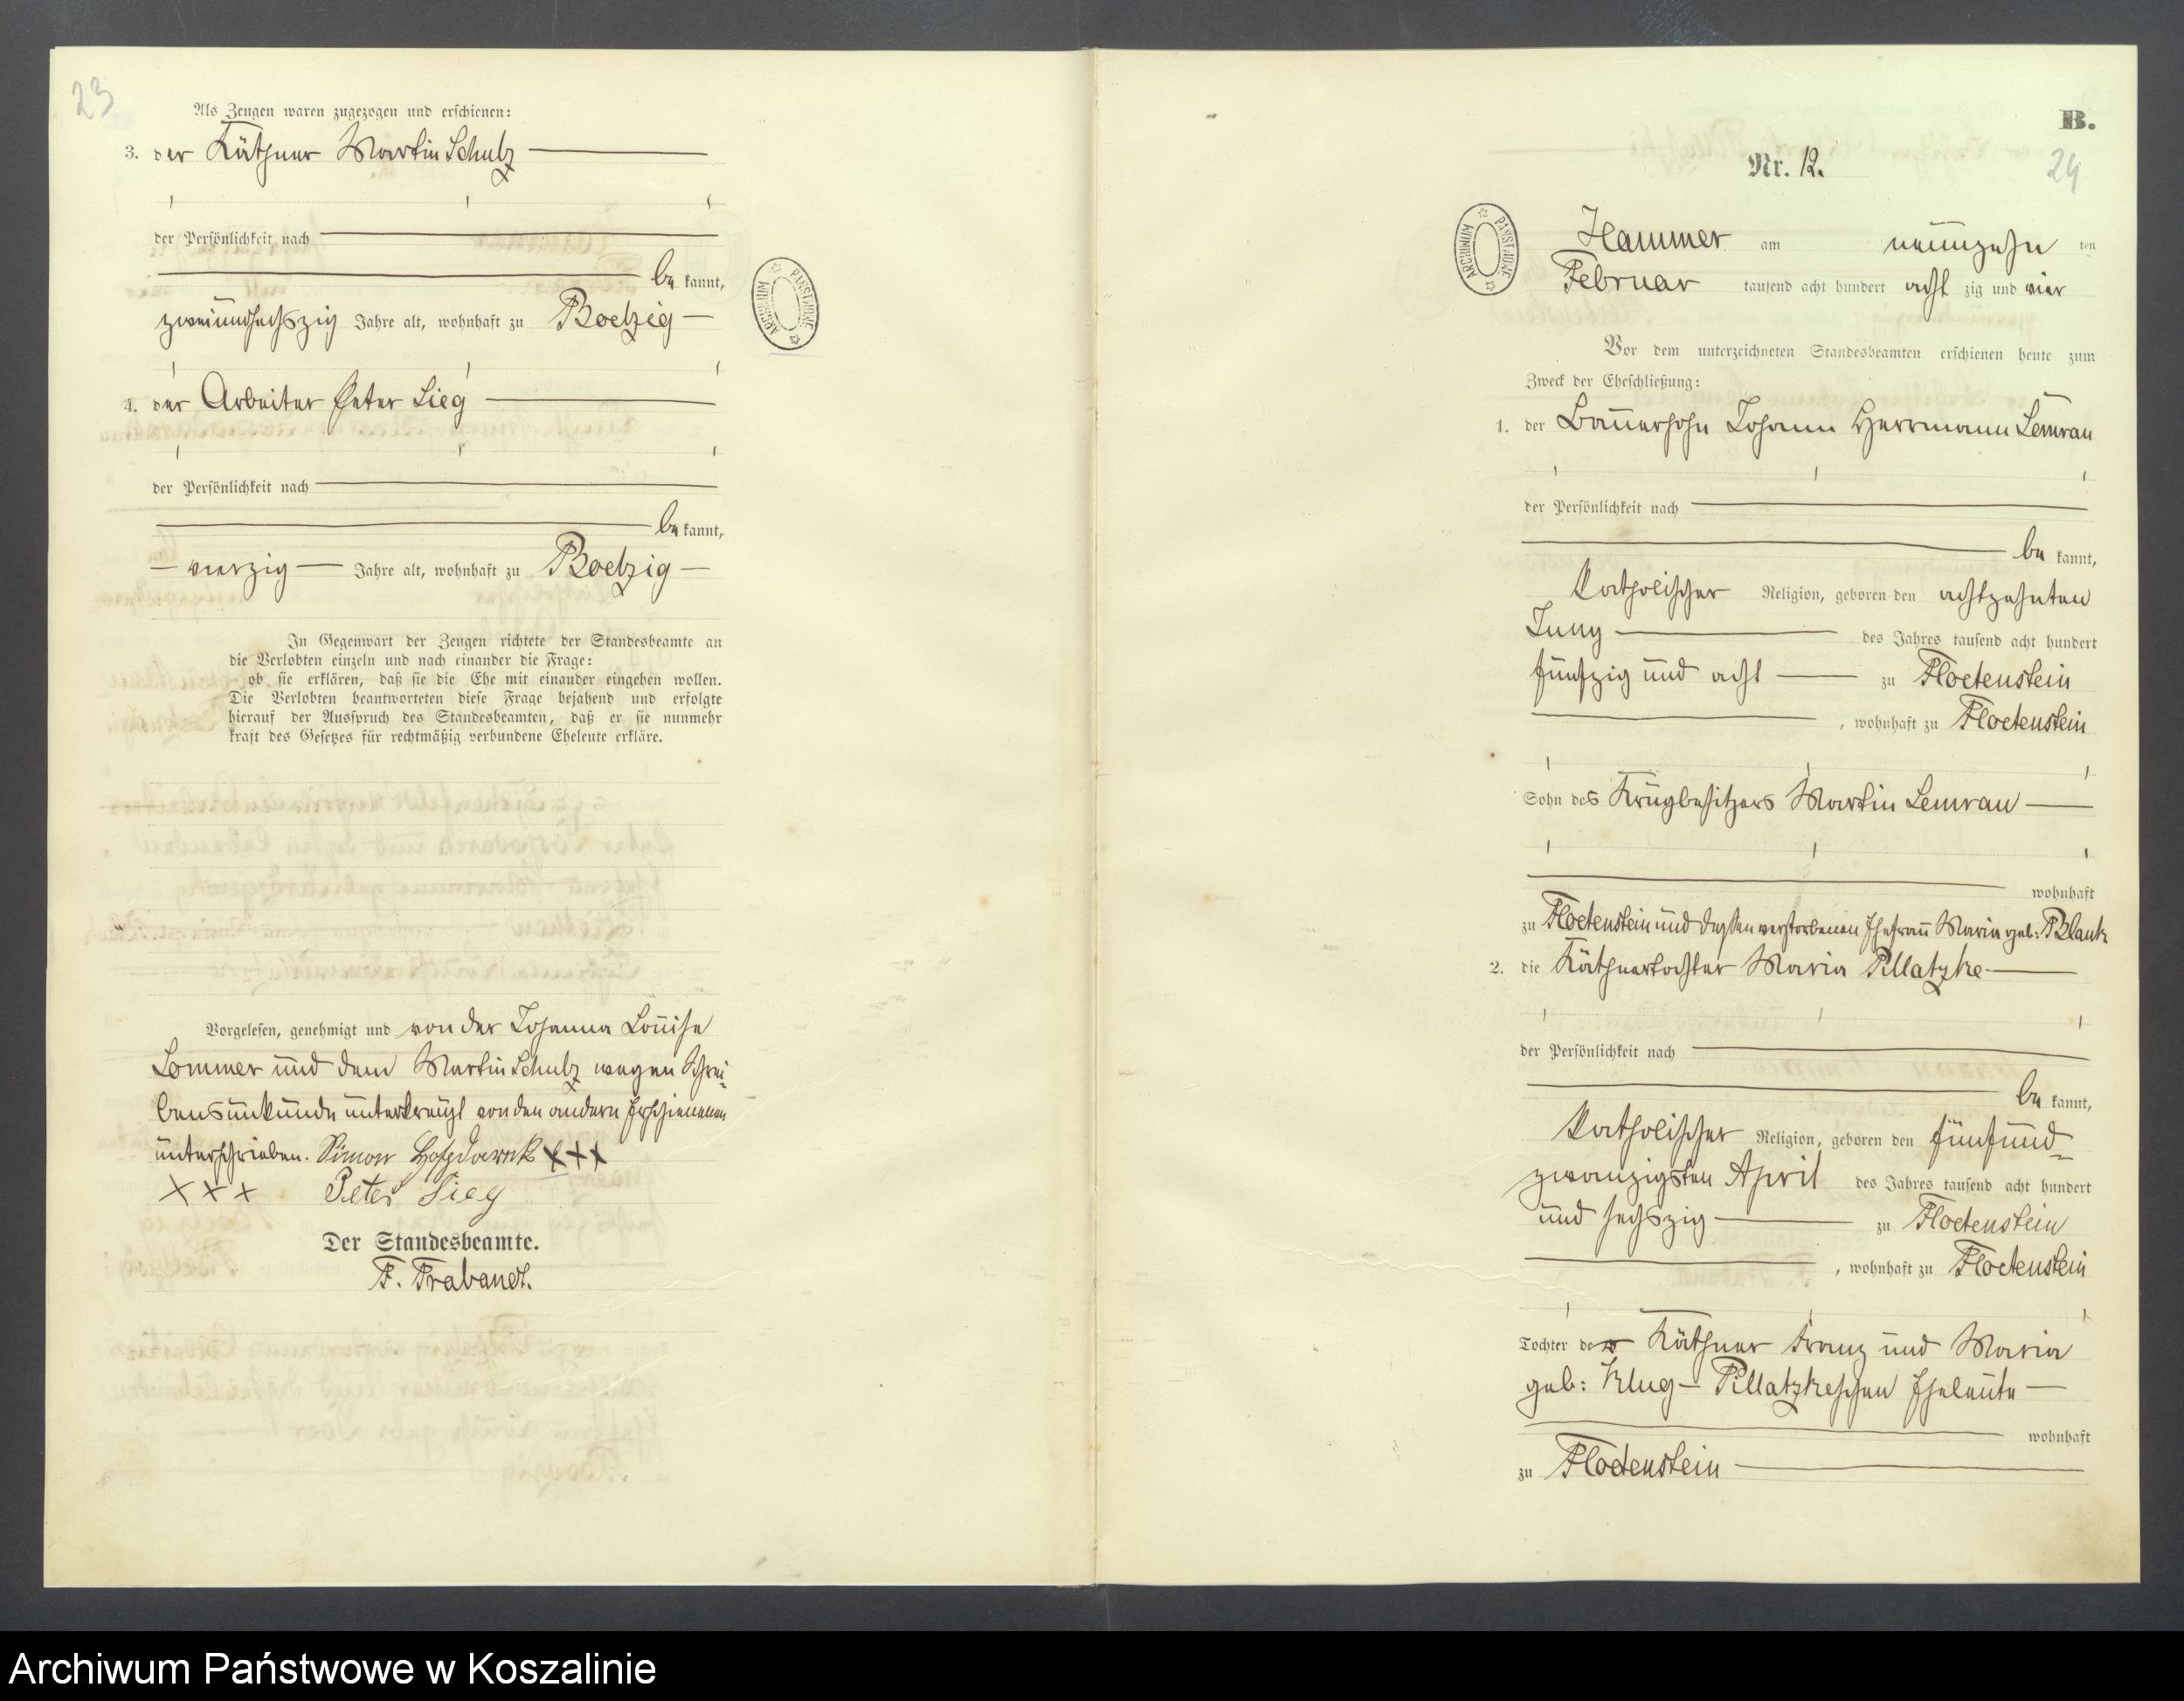 23
Als Zeugen waren zugezogen und erschienen:
3. der Käthner Martin Schulz
der Persönlichkeit nach
be kannt,
zweiundsechszig Jahre alt, wohnhaft zu Boelzig
4. der Arbeiter Peter Sieg
der Persönlichkeit nach
be kannt,
vierzig Jahre alt, wohnhaft zu Boelzig
In Gegenwart der Zeugen richtete der Standesbeamte an
die Verlobten einzeln und nach einander die Frage:
ob sie erklären, daß sie die Ehe mit einander eingehen wollen.
Die Verlobten beantworteten diese Frage bejahend und erfolgte
hierauf der Ausspruch des Standesbeamten, daß er sie nunmehr
kraft des Gesetzes für rechtmäßig verbundene Eheleute erkläre.
Vorgelesen, genehmigt und von der Johanna Louise
Lommer und dem Martin Schulz wegen Schrei-
bensunkunde unterkreuzt von den andern Erschienenen
unterschrieben. Simon XXX
XXX Peter Sieg
Der Standesbeamte.
F. Trabandt.
ARCHIWUM PAŃSTWOWE
B.
24
Nr. 12.
ARCHIWUM PAŃSTWOWE
Hammer am neunzehn ten
Februar tausend acht hundert acht zig und vier
Vor dem unterzeichneten Standesbeamten erschienen heute zum
Zweck der Eheschließung:
1. der Bauersohn Johann Herrmann Lemrau
der Persönlichkeit nach
be kannt,
katholischer Religion, geboren den achtzehnten
Juny des Jahres tausend acht hundert
fünfzig und acht zu Floetenstein
, wohnhaft zu Floetenstein
Sohn des Krugbesitzers Martin Lemrau
wohnhaft
zu Floetenstein und dessen verstorbenen Ehefrau Maria geb: Blank
2. die Käthnertochter Maria Pillatzke
der Persönlichkeit nach
be kannt,
katholischer Religion, geboren den fünfund=
zwanzigsten April des Jahres tausend acht hundert
und sechszig zu Floetenstein
, wohnhaft zu Floetenstein
Tochter der Käthner Franz und Maria
geb: Klug - Pillatzkeschen Eheleute
wohnhaft
zu Floetenstein
Archiwum Państwowe w Koszalinie